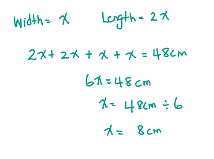 Width = x Length = 2x
2x + 2x + x + x = 48cm
6x = 48cm
x = 48cm ÷ 6
x = 8cm